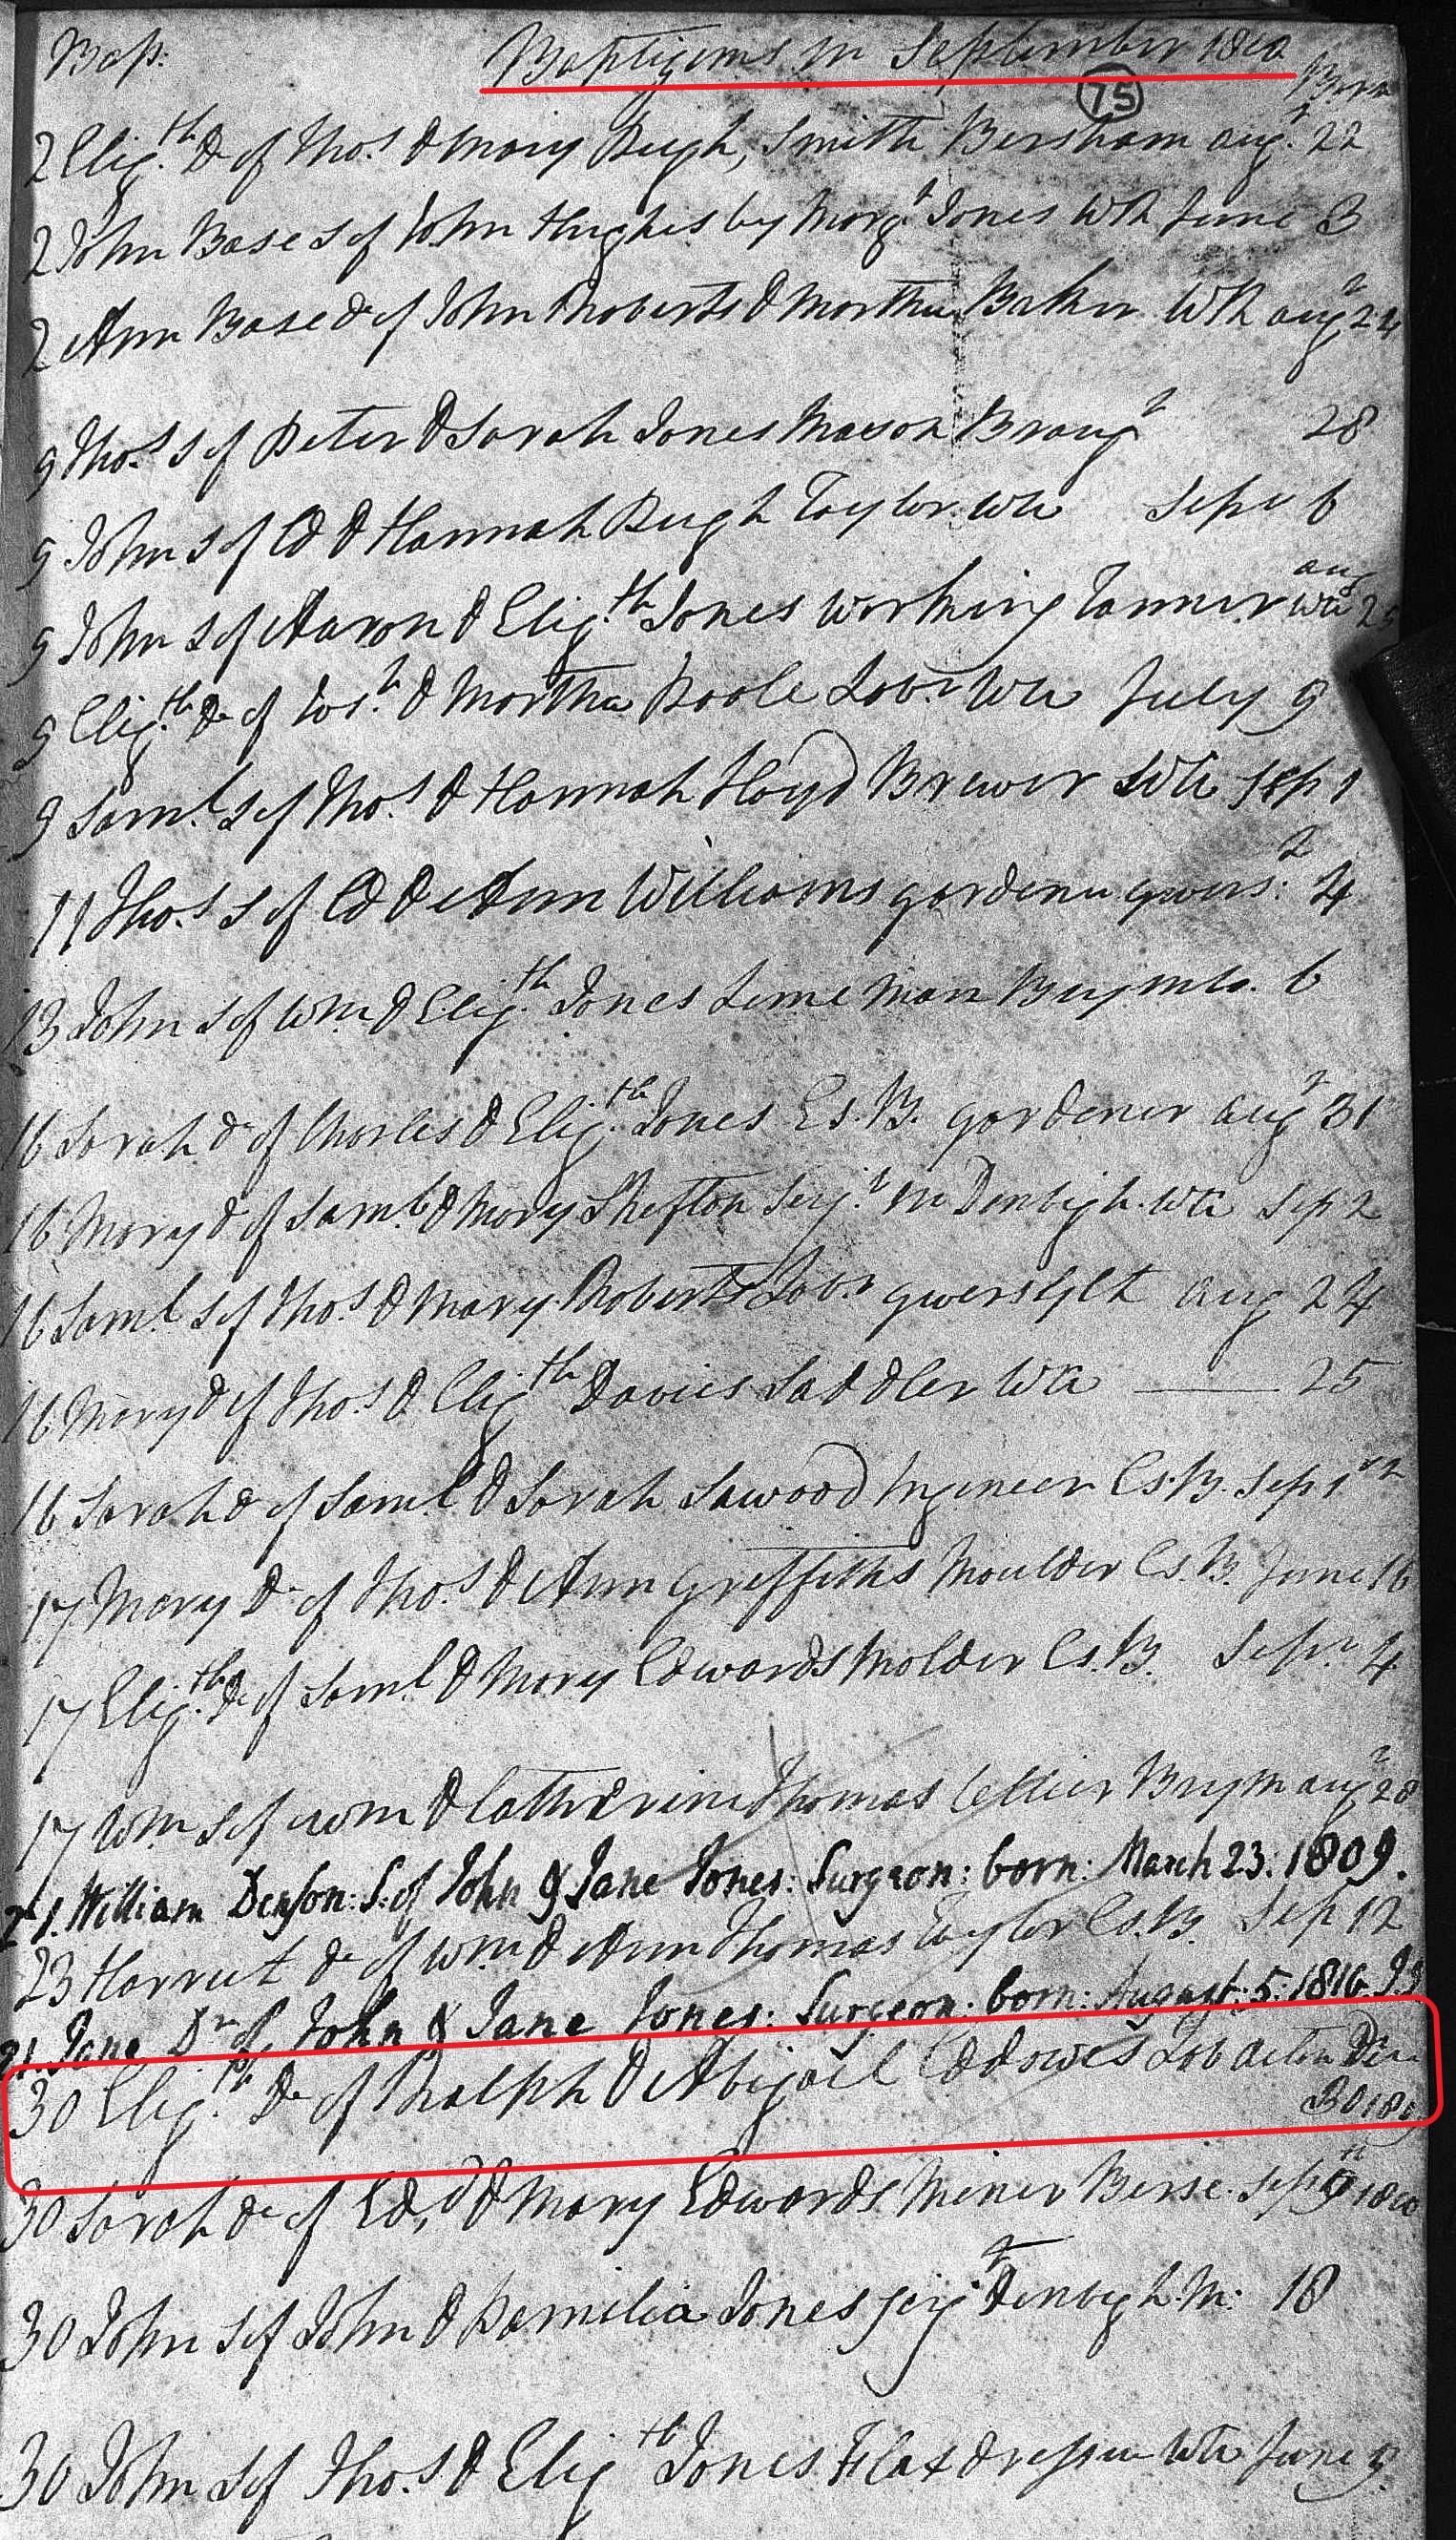 Bap: Baptizms in September 1810 Born
75
2 Eliz.th Dr of Thos. & Mary Pugh, Smith Bersham augt. 22
2 John Base S of John Hughes by Margt Jones WR June 3
2 Ann Base dr of John Roberts & Martha Baker WR augt 24
9 Thos. S of Peter & Sarah Jones Mason Broug 28
9 John S of Ed & Hannah Pugh Taylor Wa Sepr 6
aug
9 John S of Aaron & Eliz.th Jones Working Tanner Wa 25
9 Eliz.th Dr of Josh & Martha Poole Labr Wa July 9
9 Saml. S of Thos. & Hannah Lloyd Brewer Wa Sep 1
11 Thos. S of Ed & Ann Williams gardener gwers: 4
13 John S of Wm. & Eliz.th Jones Lime Man Brymbo. 6
16 Sarah dr of Charles & Eliz.th Jones Es. B. gardener augt 31
16 Mary d of Saml & Mary Shefton Serjt. m Denbigh. Wa Sep 2
16 Saml S of Thos & Mary Roberts Labr gwersyllt aug 24
16 Mary d of Thos. & Elizth Davies Saddler Wa 25
16 Sarah dr of Saml & Sarah Sawood Ingineer Es. B. Sepr 1
17 Mary Dr of Thos. & Ann Griffiths Moulder Es. B. June 16
17 Eliz.th dr of Saml. & Mary Edwards Molder Es. B. Sepr. 4
17 Wm S of Wm & Catherine Thomas Collier Brym augt 28
21. William Denson: S: of John & Jane Jones: Surgeon: born: March 23: 1809.
23 Harriet dr of Wm & Ann Thomas Taylor Es. B. Sep 12
21. Jane, Dr of John & Jane Jones: Surgeon: born: August: 5: 1810
30 Eliz.th Dr of Ralph & Abigail Eddowes Lab acton Der
30 1809
30 Sarah dr of Ed, & Mary Edwards Miner Berse. Sep 1810
30 John S of John & Pamelia Jones Serjt Denbigh. M: 18
30 John S of Thos. & Elizth Jones Flaxdresser Wa June 9